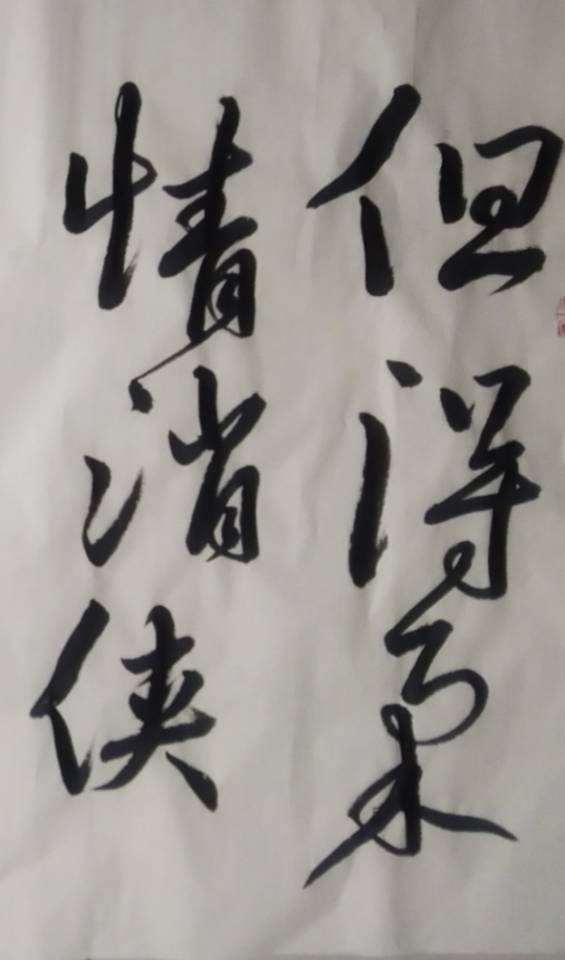 但得柔
情消侠